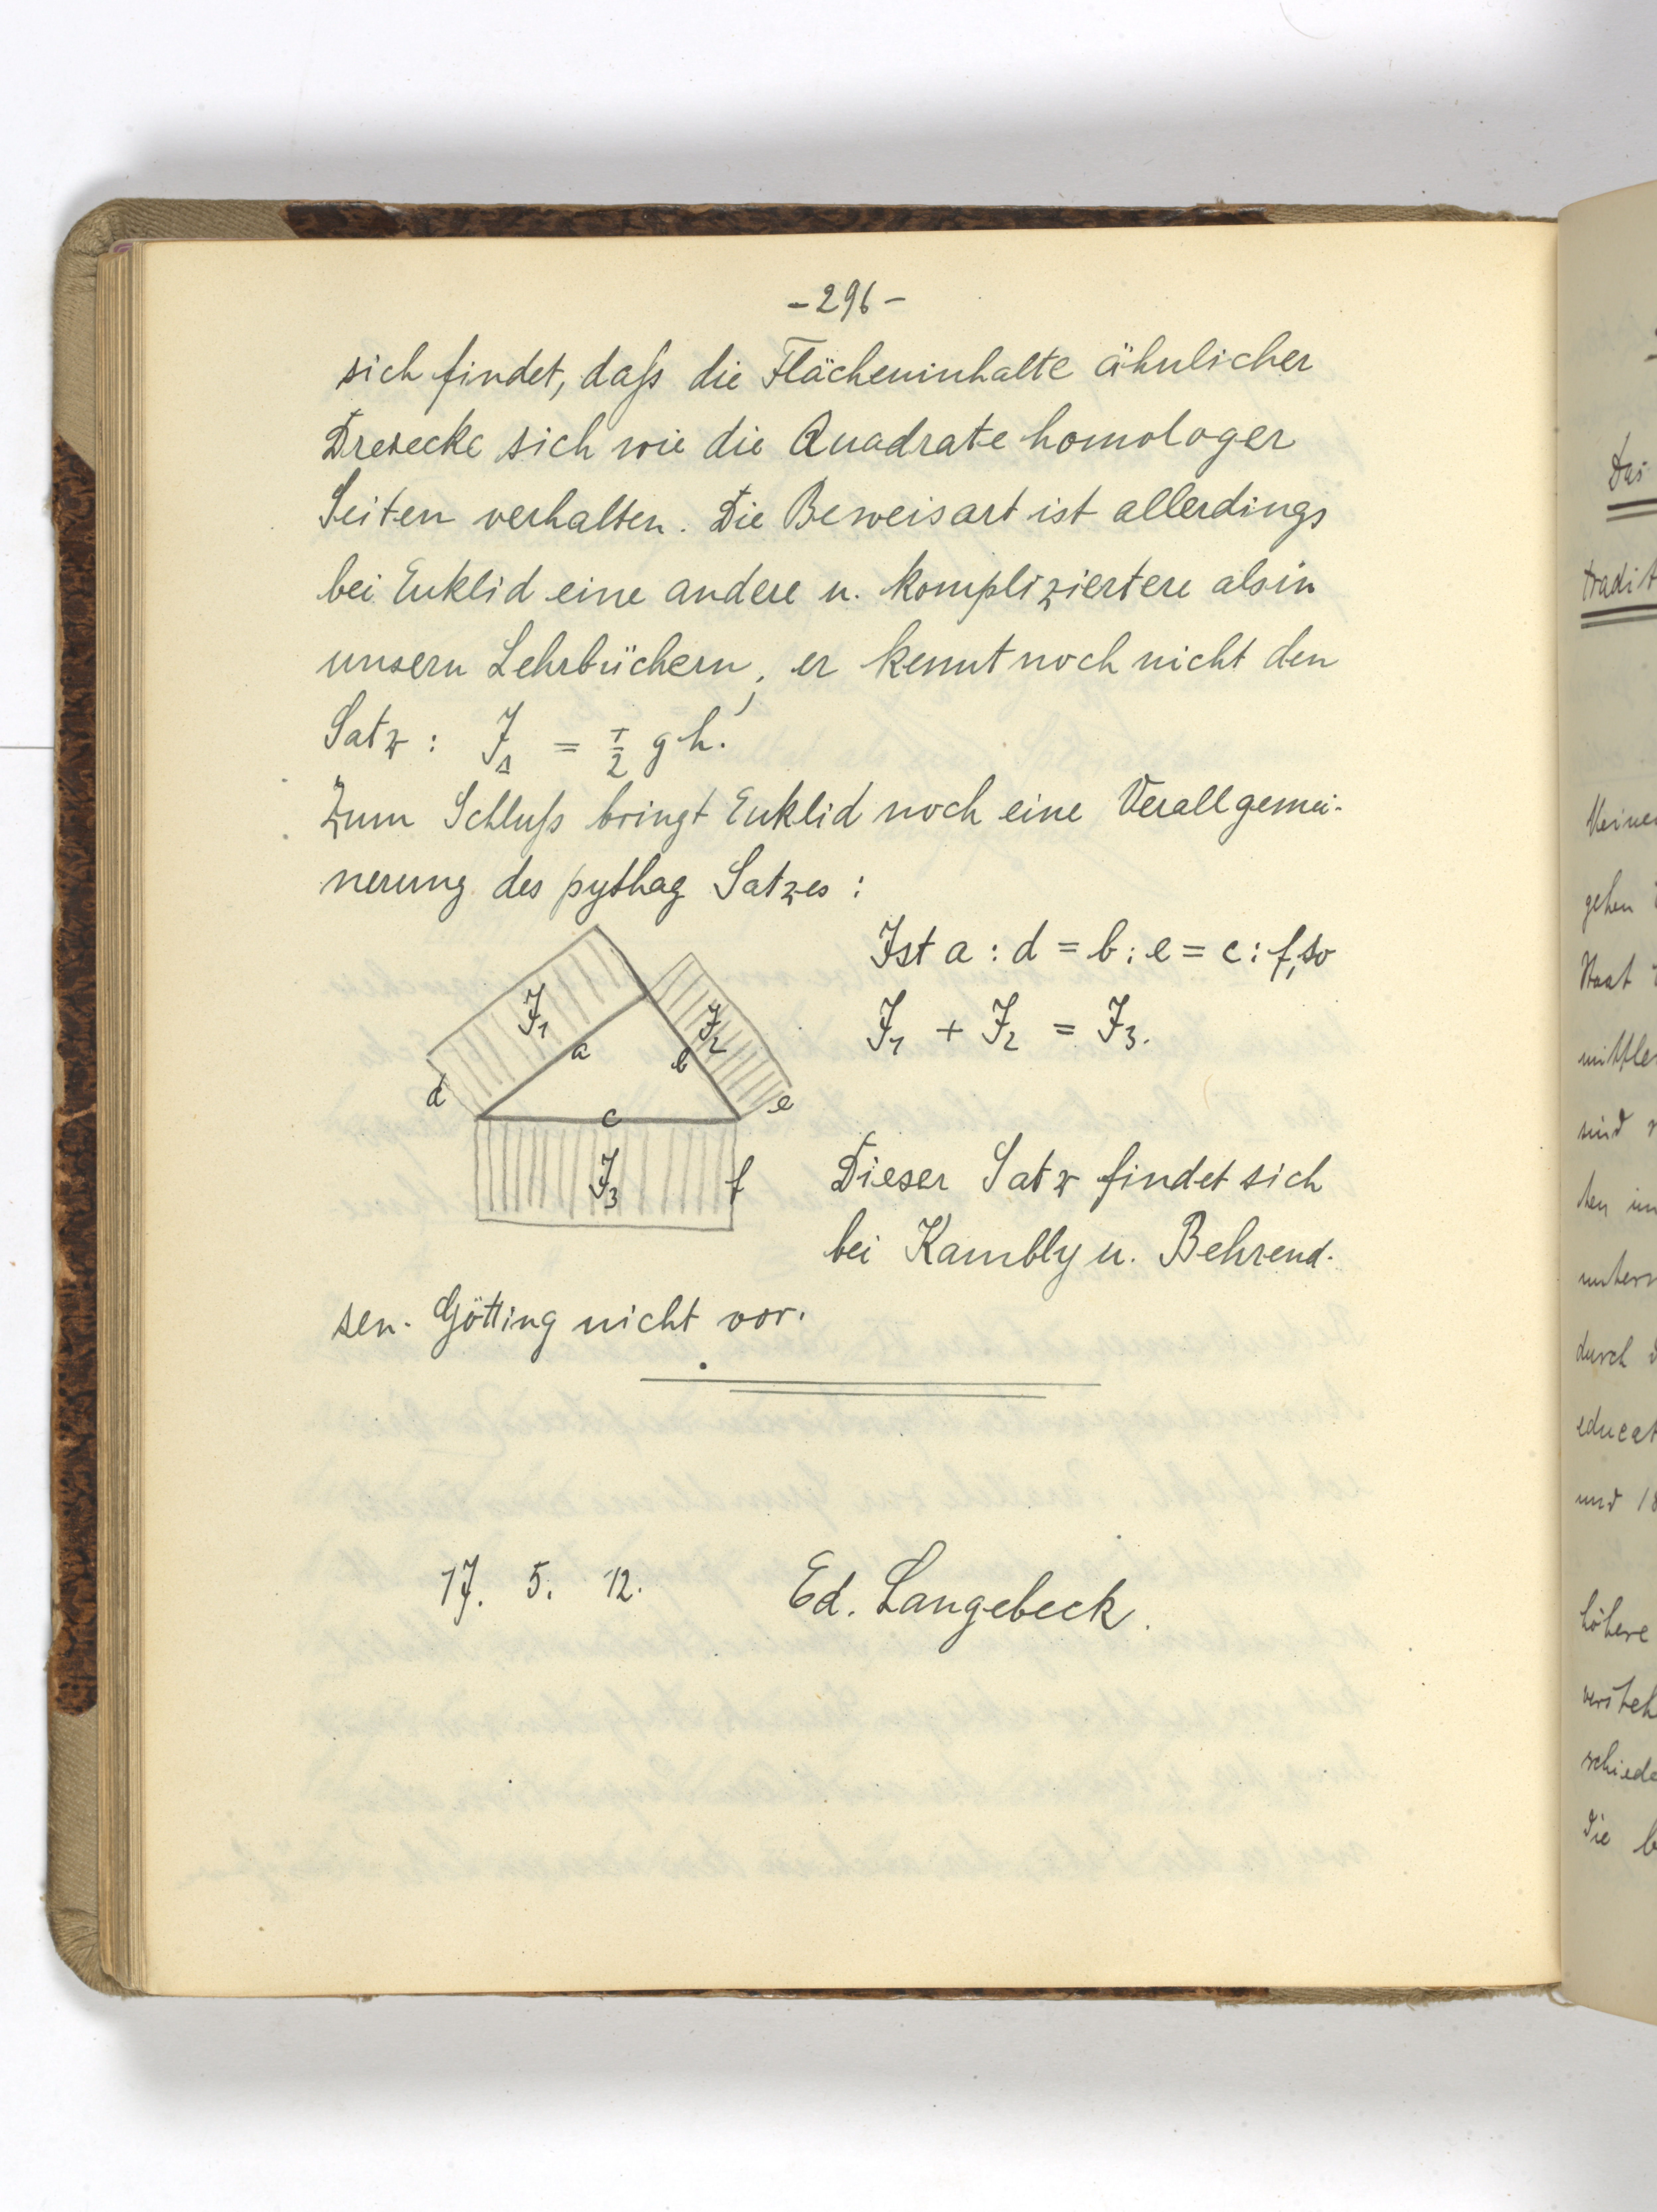 -296-
sich findet, daß die Flächeninhalte ähnlicher
Dreiecke sich wie die Quadrate homologer
Seiten verhalten. Die Beweisart ist allerdings
bei Euklid eine andere u. kompliziertere als in
unsern Lehrbüchern; er kennt noch nicht den
Satz: J_Δ = 1/2 g h.
Zum Schluß bringt Euklid noch eine Verallgemei-
nerung des pythag Satzes:
Ist a : d = b : e = c : f, so
J₁ + J₂ = J₃.
J₁
a
d
J₂
b
e
c
J₃
f
Dieser Satz findet sich
bei Kambly u. Behrend-
sen-Götting nicht vor.
17. 5. 12. Ed. Langebeck.
Das
tradit
gehen
Staat
mittler
sind
ten im
durch
educat
und 18
höhere
versteh
schiede
Die b